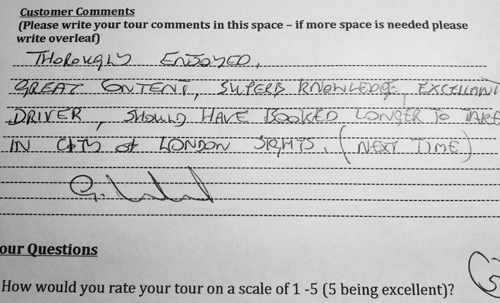 Customer Comments
(Please write your tour comments in this space – if more space is needed please
write overleaf)
THOROUGHLY ENJOYED.
GREAT CONTENT, SUPERB KNOWLEDGE, EXCELLANT
DRIVER, SHOULD HAVE BOOKED LONGER TO TAKE
IN CITY of LONDON SIGHTS. (NEXT TIME)
our Questions
How would you rate your tour on a scale of 1 -5 (5 being excellent)?
5